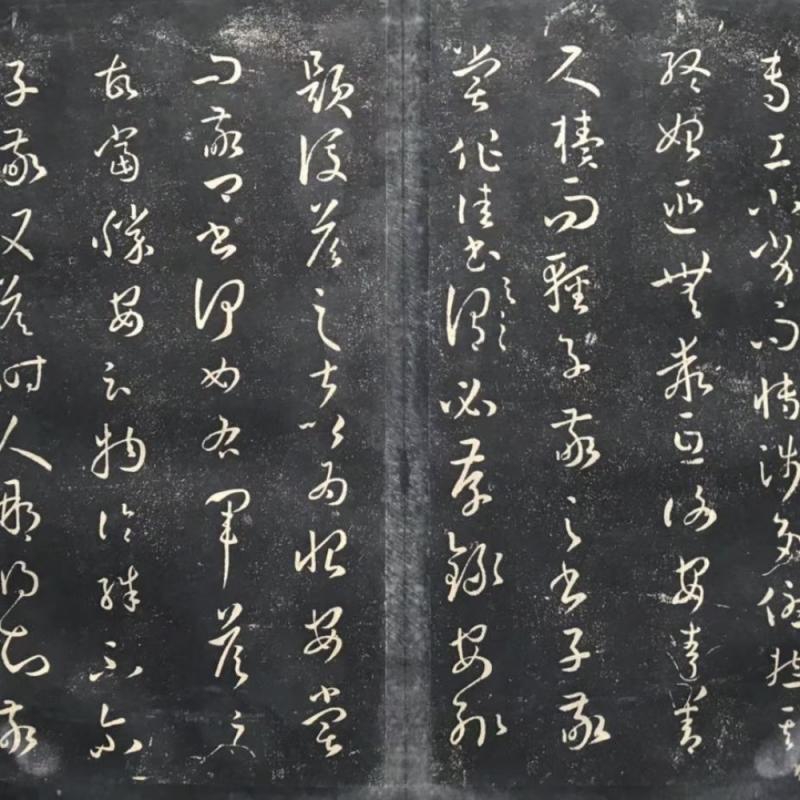 專工小劣而博涉多優總其
終始匪無乖互謝安素善
尺牘而輕子敬之書子敬
嘗作佳書與之謂必存錄安輒
題後答之甚以為恨安嘗
問敬卿書何如右軍答云
故當勝安云物論殊不爾
子敬又答時人那得知敬